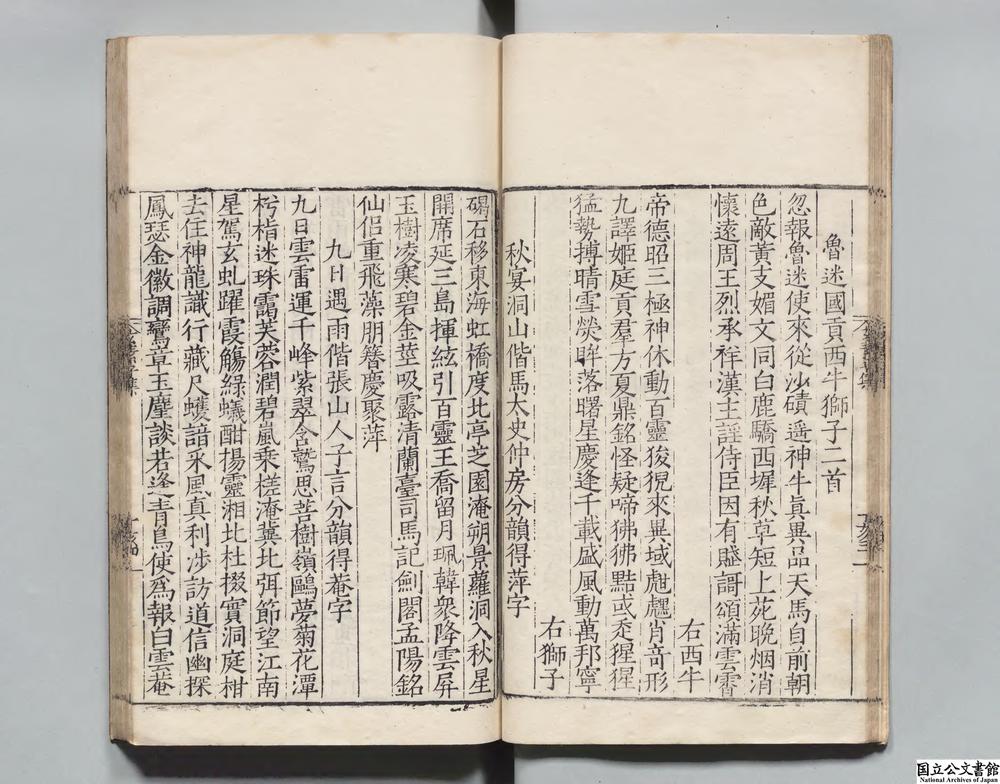 魯迷國貢西牛獅子二首
忽報魯迷使來從沙磧遥神牛真異品天馬自前朝
色敵黃支媚文同白鹿驕西墀秋草短上苑晩烟消
懷遠周王烈承祥漢主謡侍臣因有賦謌頌滿雲霄
右西牛
帝德昭三極神休動百靈狻猊來異域彪
肖竒形
九譯姬庭貢羣方夏鼎銘怪疑啼狒狒點或禿猩猩
猛勢搏晴雪熒眸落曙星慶逢千載盛風動萬邦寧
右獅子
秋宴洞山偕馬太史仲房分韻得萍字
碣石移東海虹橋度北亭芝園淹朔景蘿洞入秋星
開席延三島揮絃引百靈王喬留月珮韓衆降雲屏
玉樹凌寒碧金莖吸露清蘭臺司馬記劍閣孟陽銘
仙侣重飛藻朋簪慶聚萍
九日遇雨偕張山人子言分韻得菴字
九日雲雷運千峰紫翠含鷲思菩樹嶺鷗夢菊花潭
朽栺迷珠靄芙蓉潤碧嵐乗槎淹冀北弭節望江南
星駕玄虬躍霞觴綠蟻酣揚靈湘北杜掇實洞庭柑
去住神龍識行藏尺蠖諳采風真利涉訪道信幽探
鳳瑟金徽調鸞章玉麈談若逢青鳥使爲報白雲菴
国立公文書館
National Archives of Japan